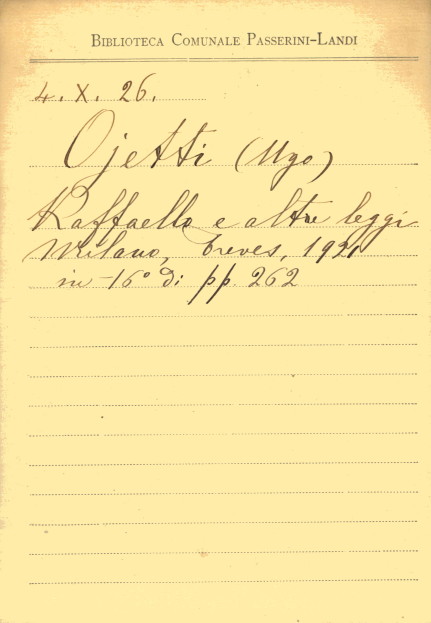 BIBLIOTECA COMUNALE PASSERINI-LANDI
4. X. 26.
Ojetti (Ugo)
Raffaello e altre leggi
Milano, Treves, 1921
in-16° di pp. 262